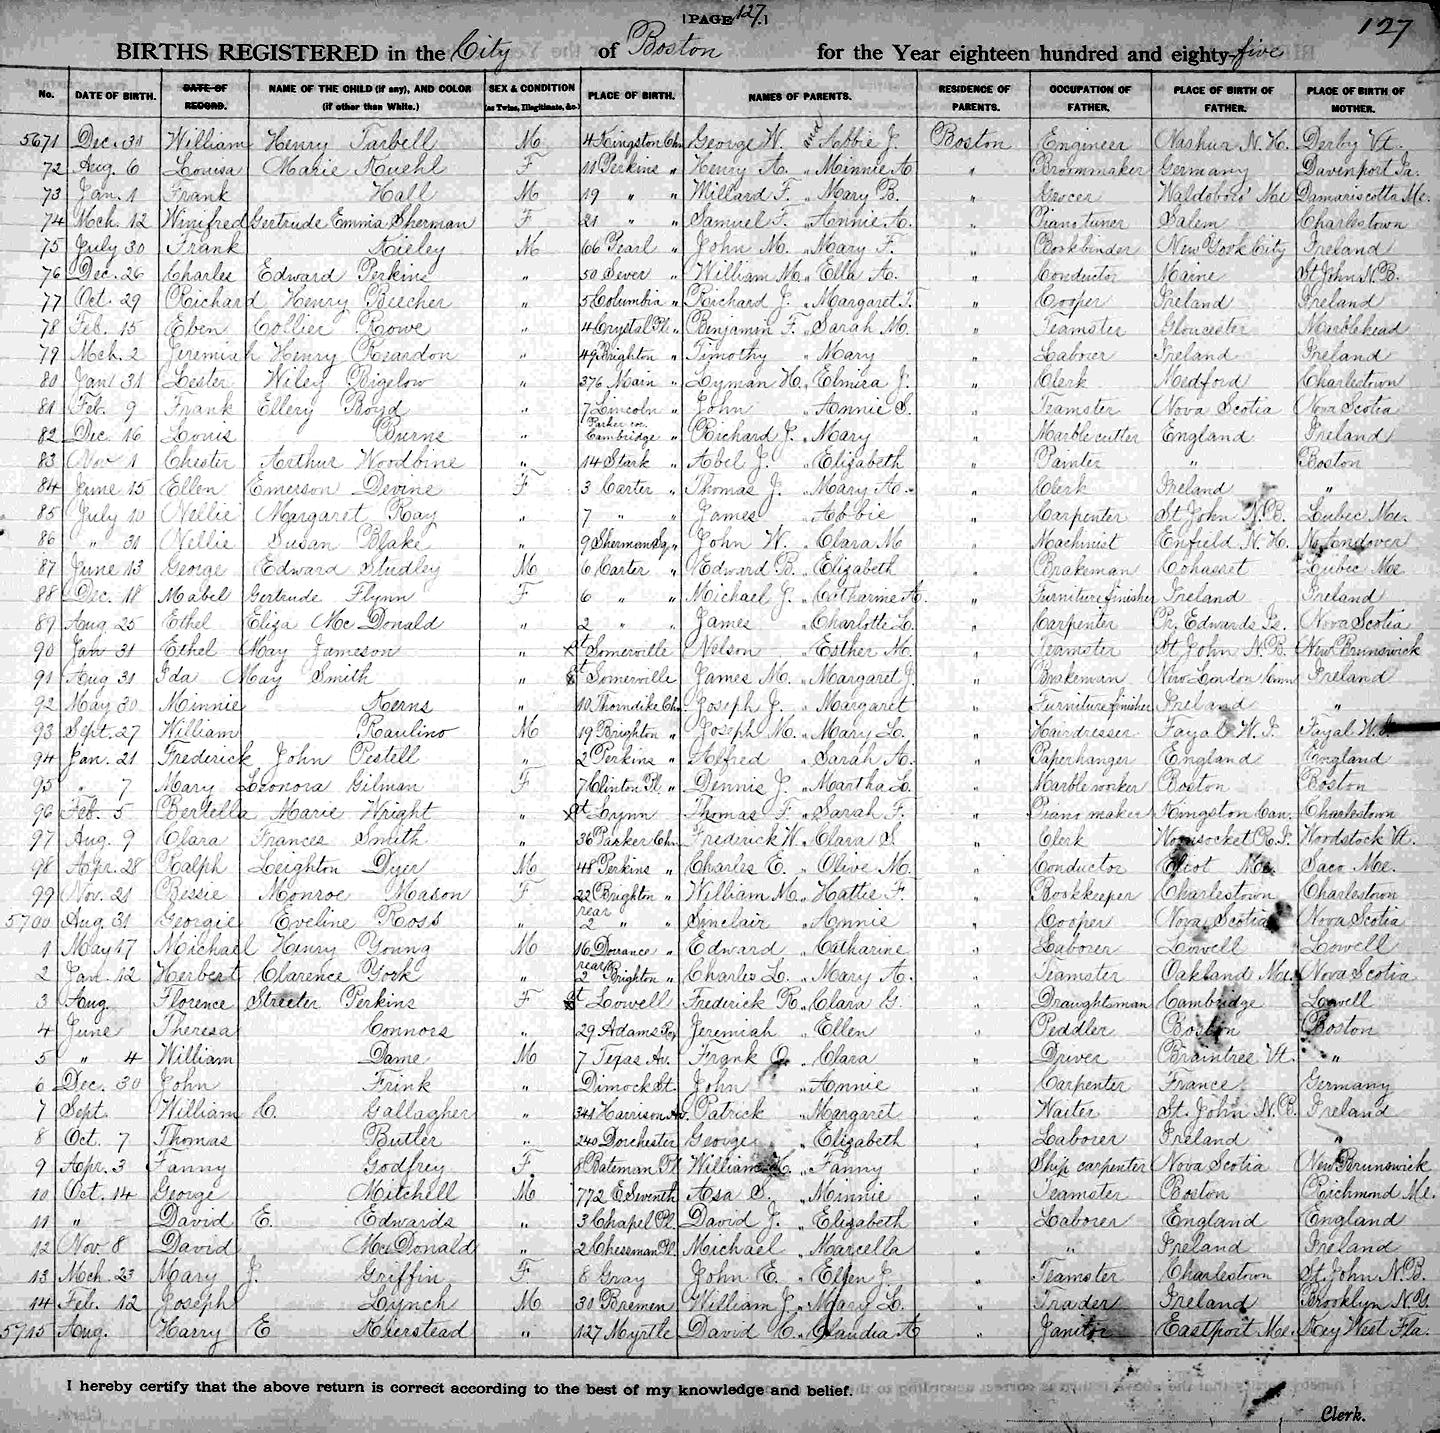 |PAGE 127.|
127
BIRTHS REGISTERED in the City of Boston for the Year eighteen hundred and eighty-five
No. DATE OF BIRTH. DATE OF RECORD. NAME OF THE CHILD (if any), AND COLOR (if other than White.) SEX & CONDITION (as Twins, Illegitimate, &c.) PLACE OF BIRTH. NAMES OF PARENTS. RESIDENCE OF PARENTS. OCCUPATION OF FATHER. PLACE OF BIRTH OF FATHER. PLACE OF BIRTH OF MOTHER.
5671 Dec. 31 William Henry Tarbell M 4 Kingston Chn George W. and Abbie J. Boston Engineer Nashua N. H. Derby Vt.
72 Aug. 6 Louisa Marie Kuehl F 11 Perkins " Henry A. " Minnie A " Broommaker Germany Davenport Ia.
73 Jan. 1 Frank Hall M 19 " " Willard F. " Mary B. " Grocer Waldoboro' Me Damariscotta Me.
74 Mch. 12 Winifred Gertrude Emma Sherman F 21 " " Samuel F. " Annie A. " Piano tuner Salem Charlestown
75 July 30 Frank Kieley M 66 Pearl " John M. " Mary F. " Bookbinder New York City Ireland
76 Dec. 26 Charles Edward Perkins " 50 Sever " William M. " Ella A. " Conductor Maine St John N.B.
77 Oct. 29 Richard Henry Beecher " 5 Columbia " Richard J. " Margaret T. " Cooper Ireland Ireland
78 Feb. 15 Eben Collier Rowe " 4 Crystal Pl. " Benjamin F. " Sarah M. " Teamster Gloucester Marblehead
79 Mch. 2 Jeremiah Henry Reardon " 49 Brighton " Timothy " Mary " Laborer Ireland Ireland
80 Jan 31 Lester Wiley Bigelow " 376 Main " Lyman H. " Elmira J. " Clerk Medford Charlestown
81 Feb. 9 Frank Ellery Boyd " 7 Lincoln " John " Annie S. " Teamster Nova Scotia Nova Scotia
82 Dec. 16 Louis Burns " Parker cor. Cambridge " Richard J. " Mary " Marble cutter England Ireland
83 Nov 1 Chester Arthur Woodbine " 14 Stark " Abel J. " Elizabeth " Painter " Boston
84 June 15 Ellen Emerson Devine F 3 Carter " Thomas J. " Mary A. " Clerk Ireland "
85 July 10 Nellie Margaret Ray " 7 " " James " Abbie " Carpenter St John N.B. Lubec Me.
86 " 31 Nellie Susan Blake " 9 Sherman Sq. " John W. " Clara M " Machinist Enfield N. H. No. Andover
87 June 13 George Edward Studley M 6 Carter " Edward B. " Elizabeth " Brakeman Cohasset Lubec Me
88 Dec. 18 Mabel Gertrude Flynn F 6 " " Michael J. " Catharine A. " Furniture finisher Ireland Ireland
89 Aug. 25 Ethel Eliza McDonald " 2 " " James " Charlotte L. " Carpenter Pr. Edwards Is. Nova Scotia
90 Jan 31 Ethel May Jameson " at Somerville Nelson " Esther M. " Teamster St John N.B. New Brunswick
91 Aug 31 Ida May Smith " at Somerville James M. " Margaret J. " Brakeman New London Conn Ireland
92 May 30 Minnie Kerns " 10 Thorndike Chn. Joseph J. " Margaret " Furniture finisher Ireland "
93 Sept. 27 William Raulino M 19 Brighton " Joseph M. " Mary L. " Hairdresser Fayal W. I. Fayal W. I.
94 Jan. 21 Frederick John Pestell " 2 Perkins " Alfred " Sarah A. " Paperhanger England England
95 " 7 Mary Leonora Gilman F 7 Clinton Pl. " Dennis J. " Martha L. " Marble worker Boston Boston
96 Feb. 5 Bertella Marie Wright " at Lynn Thomas F. " Sarah F. " Piano maker Kingston Can. Charlestown
97 Aug. 9 Clara Frances Smith " 36 Parker Chn. Frederick W. " Clara S. " Clerk Woonsocket R.I. Woodstock Vt.
98 Apr. 28 Ralph Leighton Dyer M 48 Perkins " Charles E. " Olive M. " Conductor Eliot Me. Saco Me.
99 Nov. 21 Bessie Monroe Mason F 22 Brighton " William M. " Hattie F. " Bookkeeper Charlestown Charlestown
5700 Aug. 31 Georgie Eveline Ross " rear 2 " " Sinclair " Annie " Cooper Nova Scotia Nova Scotia
1 May 17 Michael Henry Young M 16 Dorrance " Edward " Catharine " Laborer Lowell Lowell
2 Jan. 12 Herbert Clarence York " rear 2 Brighton " Charles L. " Mary A. " Teamster Oakland Me. Nova Scotia
3 Aug. Florence Streeter Perkins F at Lowell Frederick R. " Clara G. " Draughtsman Cambridge Lowell
4 June Theresa Connors " 29 Adams Jeremiah " Ellen " Peddler Boston Boston
5 " 4 William Dame M 7 Texas Av. Frank O. " Clara " Driver Braintree Vt. "
6 Dec. 30 John Frink " Dimock St. John " Annie " Carpenter France Germany
7 Sept. William C. Gallagher " 341 Harrison Av. Patrick " Margaret " Waiter St. John N.B. Ireland
8 Oct. 7 Thomas Butler " 240 Dorchester George " Elizabeth " Laborer Ireland "
9 Apr. 3 Fanny Godfrey F. 8 Bateman Pl. William H. " Fanny " Ship carpenter Nova Scotia New Brunswick
10 Oct. 14 George Mitchell M 772 E Seventh Asa S. " Minnie " Teamster Boston Richmond Me.
11 " David E. Edwards " 3 Chapel Pl. David J. " Elizabeth " Laborer England England
12 Nov. 8 David McDonald " 2 Chessman Pl. Michael " Marcella " " Ireland Ireland
13 Mch. 23 Mary J. Griffin F 8 Gray John E. " Ellen J. " Teamster Charlestown St. John N.B.
14 Feb. 12 Joseph Lynch M. 30 Bremen William J. " Mary L. " Trader Ireland Brooklyn N.Y.
5715 Aug. Harry E Kierstead " 127 Myrtle David C. " Claudia A " Janitor Eastport Me. Key West Fla.
I hereby certify that the above return is correct according to the best of my knowledge and belief.
Clerk.